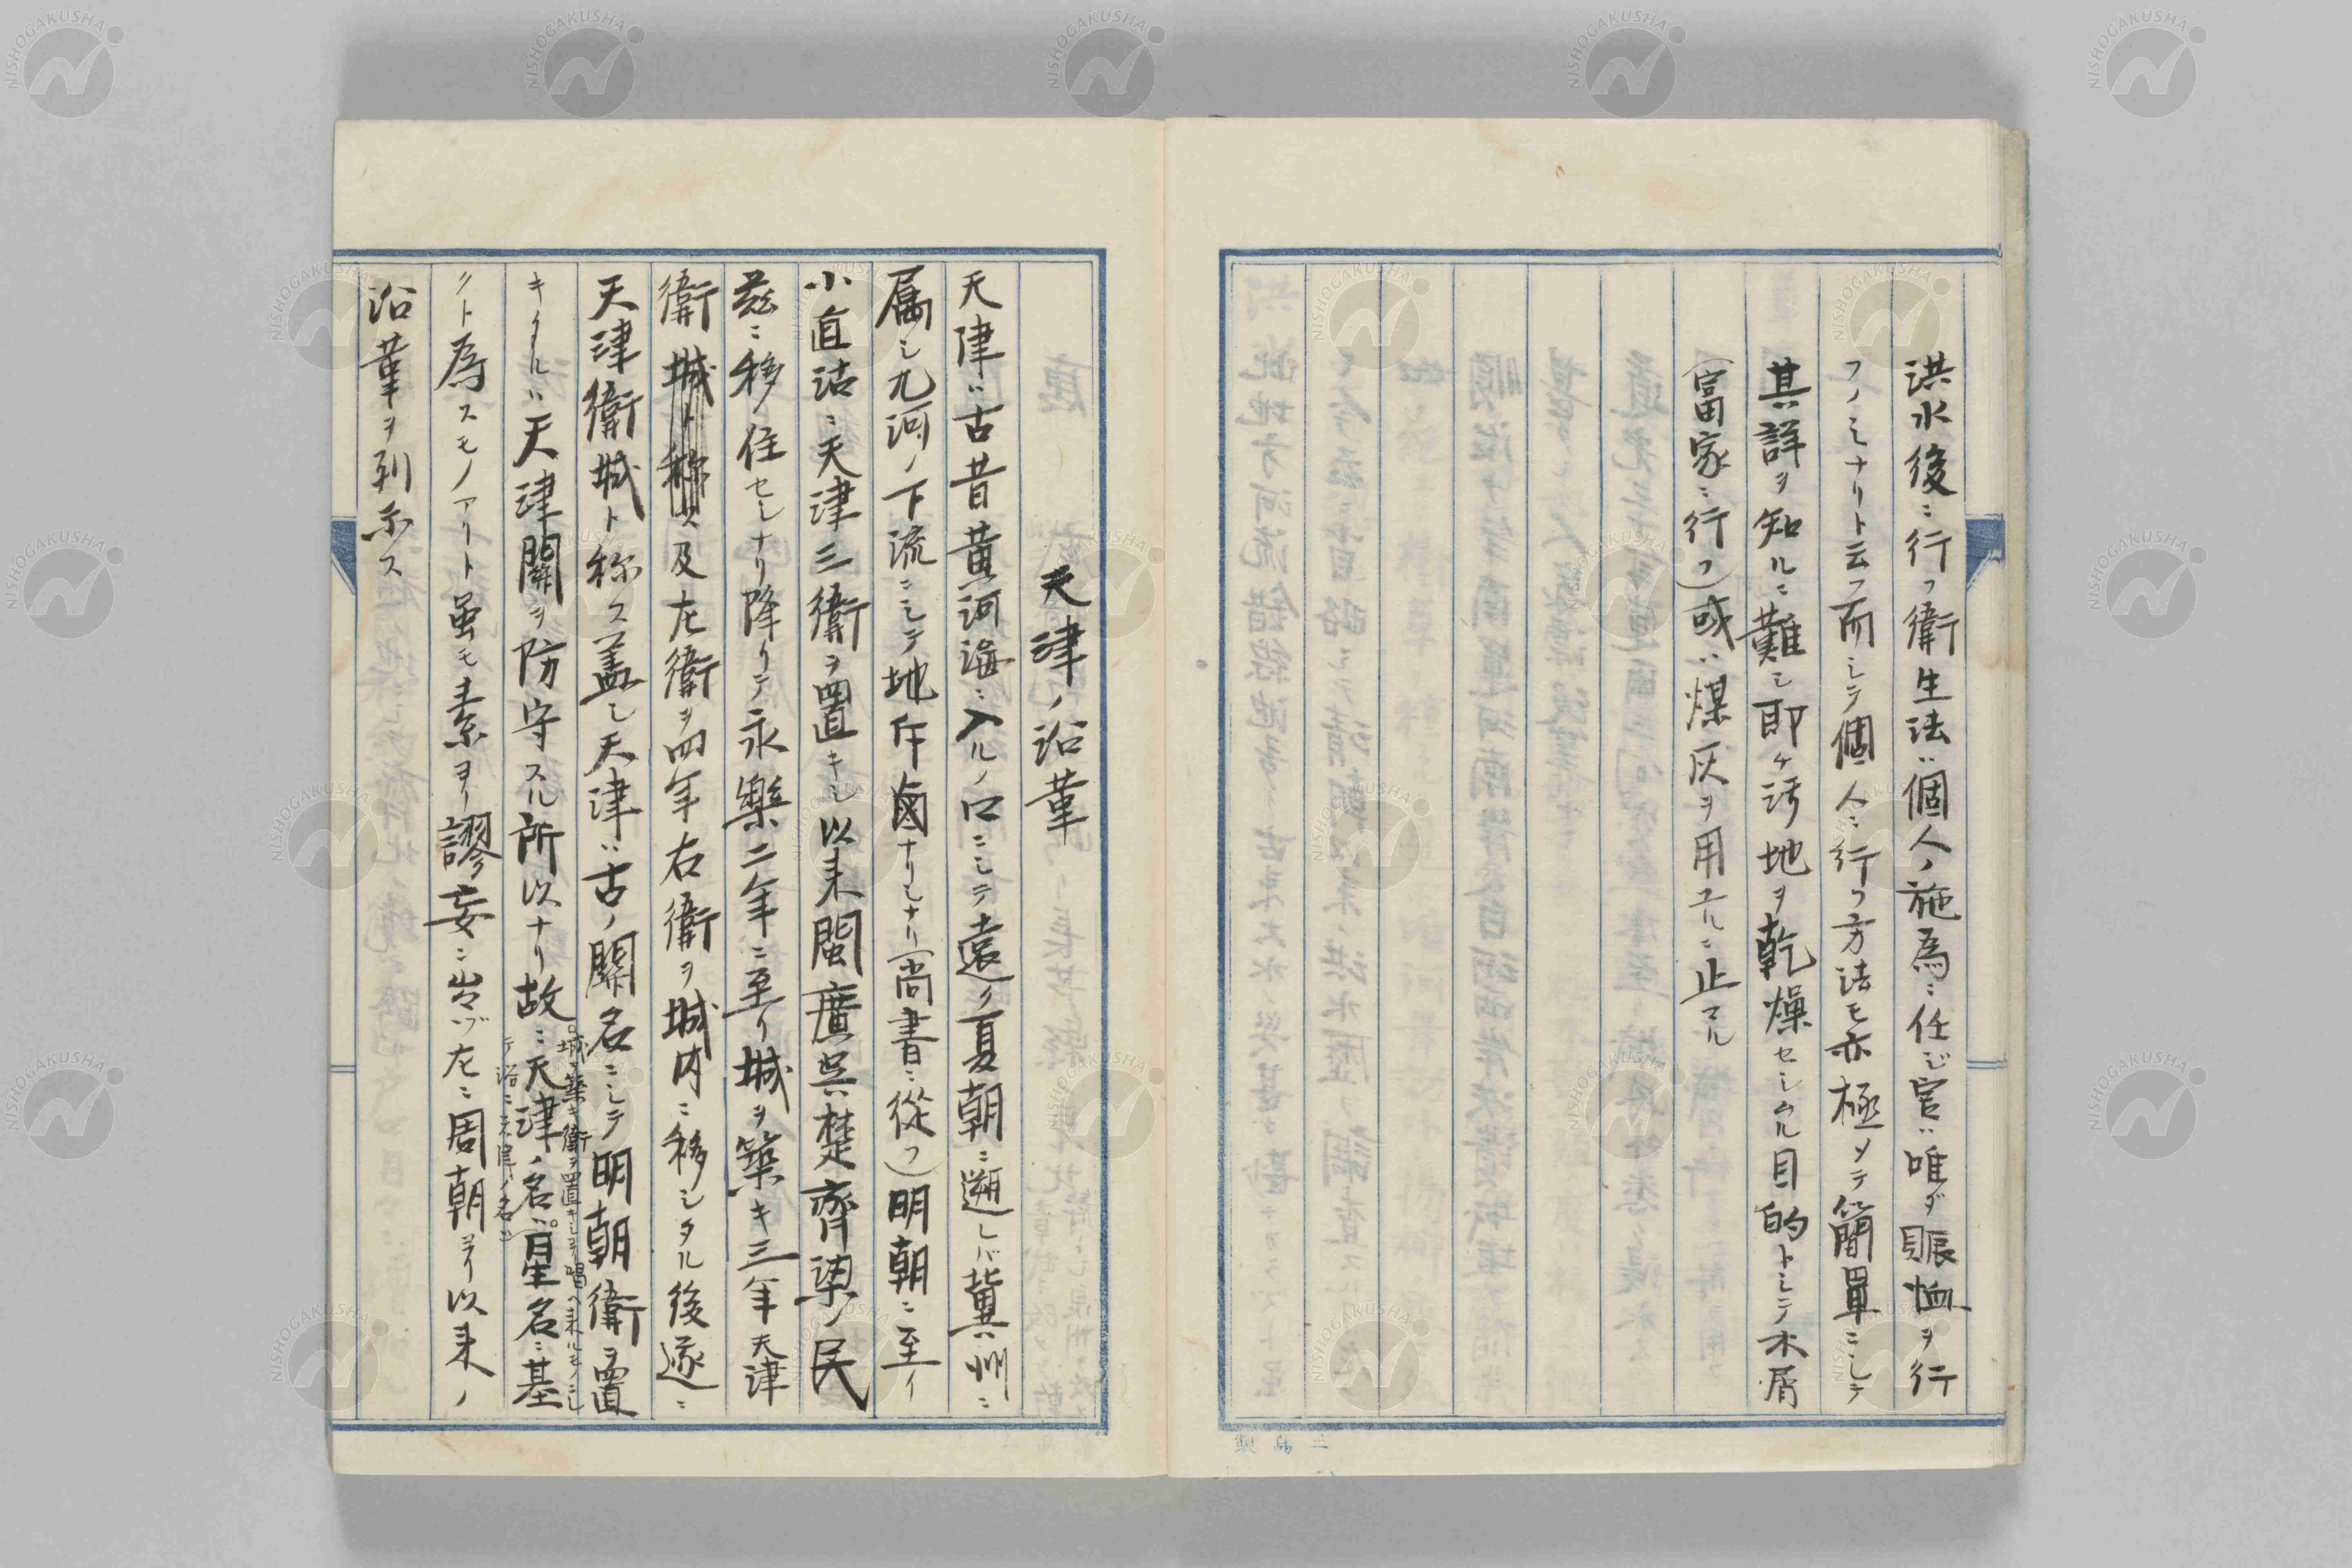 洪水後ニ行フ衛生法ハ個人ノ施為ニ任ジ官ハ唯ダ賑恤ヲ行
フノミナリト云フ而シテ個人ニ行フ方法モ亦極メテ簡単ニシテ
其詳ヲ知ルニ難シ即ケ汚地ヲ乾燥セシムル目的トシテ木屑
(富家ニ行フ)或ハ煤灰ヲ用ユルニ止マル
天津ノ沿革
天津ハ古昔黄河海ニ入ルノ口ニシテ遠ク夏朝ニ遡レバ冀州ニ
属シ九河ノ下流ニシテ地斥鹵ナリシナリ(尚書ニ從フ)明朝ニ至リ
小直沽ニ天津三衛ヲ置キシ以来閩廣呉楚齊梁ノ民
茲ニ移住セシナリ降リテ永樂二年ニ至リ城ヲ築キ三年天津
衛城ト称ス及左衛ヲ四年右衛ヲ城内ニ移シタル後遂ニ
天津衛城ト称ス盖シ天津ハ古ノ關名ニシテ明朝衛ヲ置
キタルハ天津關ヲ防守スル所以ナリ故ニ天津ノ名ハ星名ニ基
城ヲ築キ衛ヲ置キシヨリ唱ヘ来ルモノニシ
テ沿ニ天津ノ名ハ
クト為スモノアリト虽モ素ヨリ謬妄ニ出ヅ左ニ周朝ヨリ以来ノ
沿革ヲ列示ス
NISHOGAKUSHA